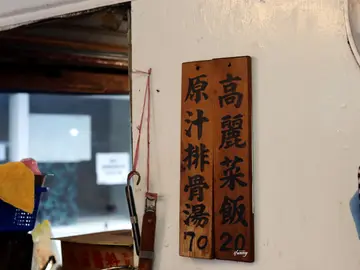 高麗菜飯 20
原汁排骨湯 70